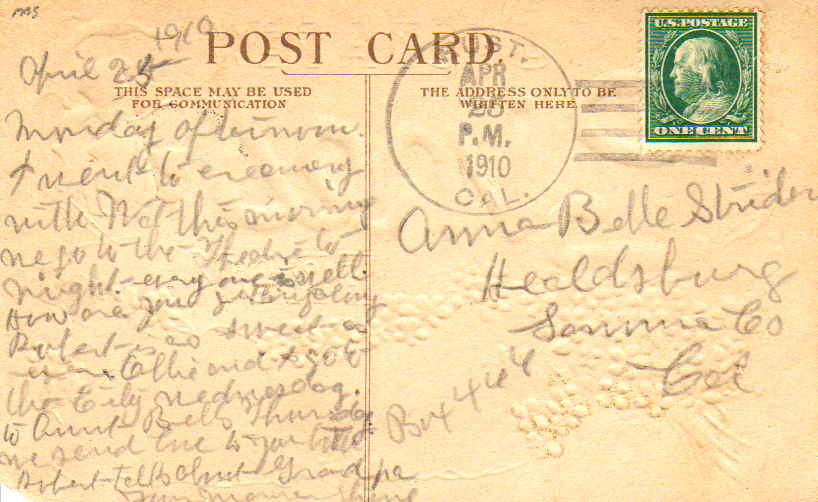 1910
POST CARD.
April 25
THIS SPACE MAY BE USED
FOR COMMUNICATION
THE ADDRESS ONLY TO BE
WRITTEN HERE
Monday afternoon.
I went to creamery
with Nat this morning
we go to the Theatre to
night every one is well.
How are you
Robert is as sweet as
ever Ollie and I go to
the City Wednesday.
to Aunt Bells Thursday
we send love to you
Robert talks about Grandpa
UST.
APR
25
P.M.
1910
CAL.
U.S. POSTAGE
ONE CENT
Anna Belle Strider
Healdsburg
Sonoma Co
Cal
Box 444